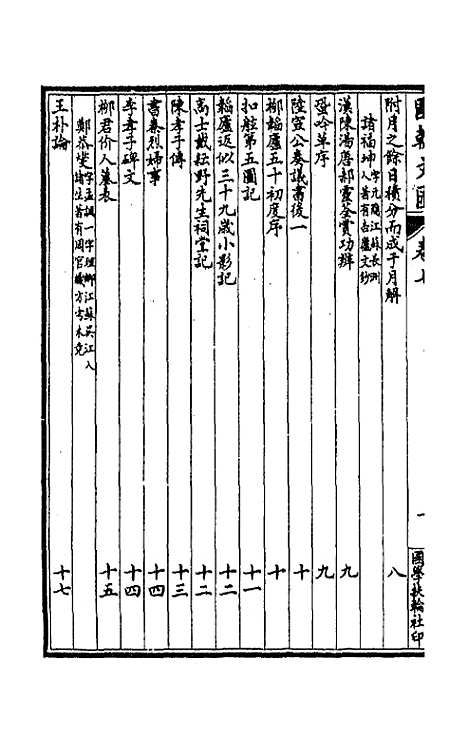 國朝文匯 卷七 一 國學扶輪社印
附月之餘日積分而成于月解 八
諸福坤 字元簡江蘇長洲人著有古杏文鈔
漢陳湯唐郝靈荃賞功辨 九
蛩吟草序 九
陸宣公奏議書後一 十
柳韜廬五十初度序 十
扣舷第五圖記 十一
韜廬返似三十九歲小影記 十二
高士戴耘野先生祠堂記 十二
陳孝子傳 十三
書秦烈婦事 十四
李孝子碑文 十四
柳君价人墓表 十五
鄭恭燮 字孟誠一字理卿江蘇吳江人諸生著有周官職方考未竟
王朴論 十七